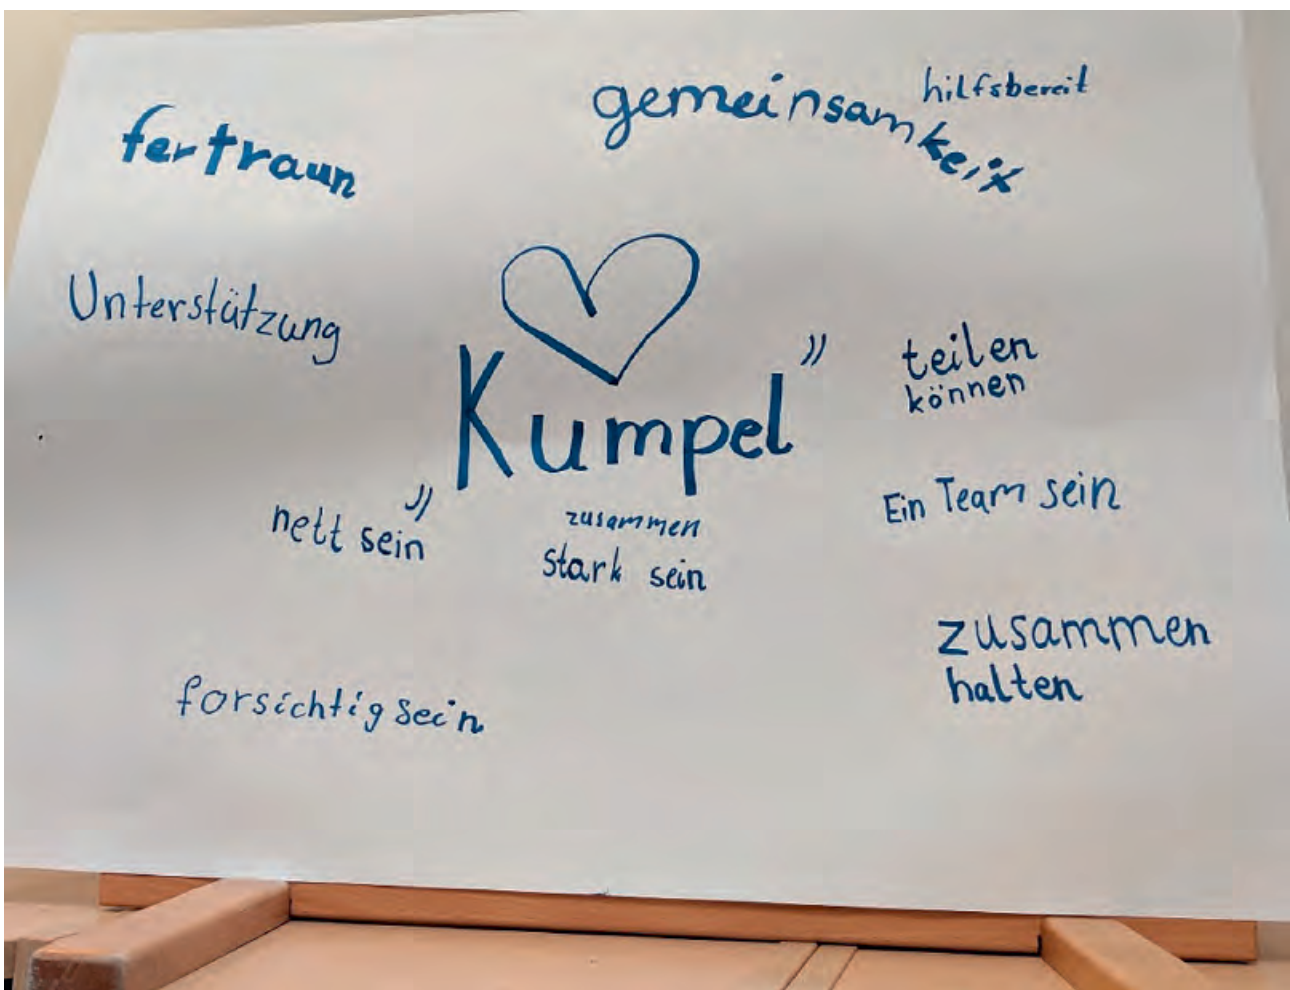 fertraun
gemeinsamkeit
hilfsbereit
Unterstützung
„Kumpel”
teilen
können
nett sein
zusammen
stark sein
Ein Team sein
zusammen
halten
forsichtig sein